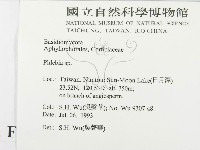 國立自然科學博物館
NATIONAL MUSEUM OF NATURAL SCIENCE
TAICHUNG, TAIWAN, R.O. CHINA
Basidiomycota
Aphyllophorales, Corticiaceae
Phlebia sp.
Loc. Taiwan, Nantou: Sun-Moon Lake(日月潭)
alt. 750m,
on branch of angiosperm
Col. S.H. Wu(吳聲華), No. Wu 9307-68
Date: July 06, 1993
Det.: S.H. Wu(吳聲華)
F